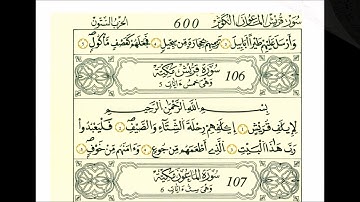 سورة قريش الماعون الكوثر 600 الحزب الستون
وَأَرْسَلَ عَلَيْهِمْ طَيْرًا أَبَابِيلَ تَرْمِيهِمْ بِحِجَارَةٍ مِنْ سِجِّيلٍ فَجَعَلَهُمْ كَعَصْفٍ مَأْكُولٍ
سُورَةُ قُرَيْشٍ مَكِّيَّةٌ 106
وَهِيَ خَمْسُ آيَاتٍ 5
بِسْمِ اللَّهِ الرَّحْمَٰنِ الرَّحِيمِ
لِإِيلَٰفِ قُرَيْشٍ إِۦلَٰفِهِمْ رِحْلَةَ الشِّتَاءِ وَالصَّيْفِ فَلْيَعْبُدُوا
رَبَّ هَٰذَا الْبَيْتِ الَّذِي أَطْعَمَهُمْ مِنْ جُوعٍ وَءَامَنَهُمْ مِنْ خَوْفٍ
سُورَةُ الْمَاعُونِ مَكِّيَّةٌ 107
وَهِيَ سِتُّ آيَاتٍ 6